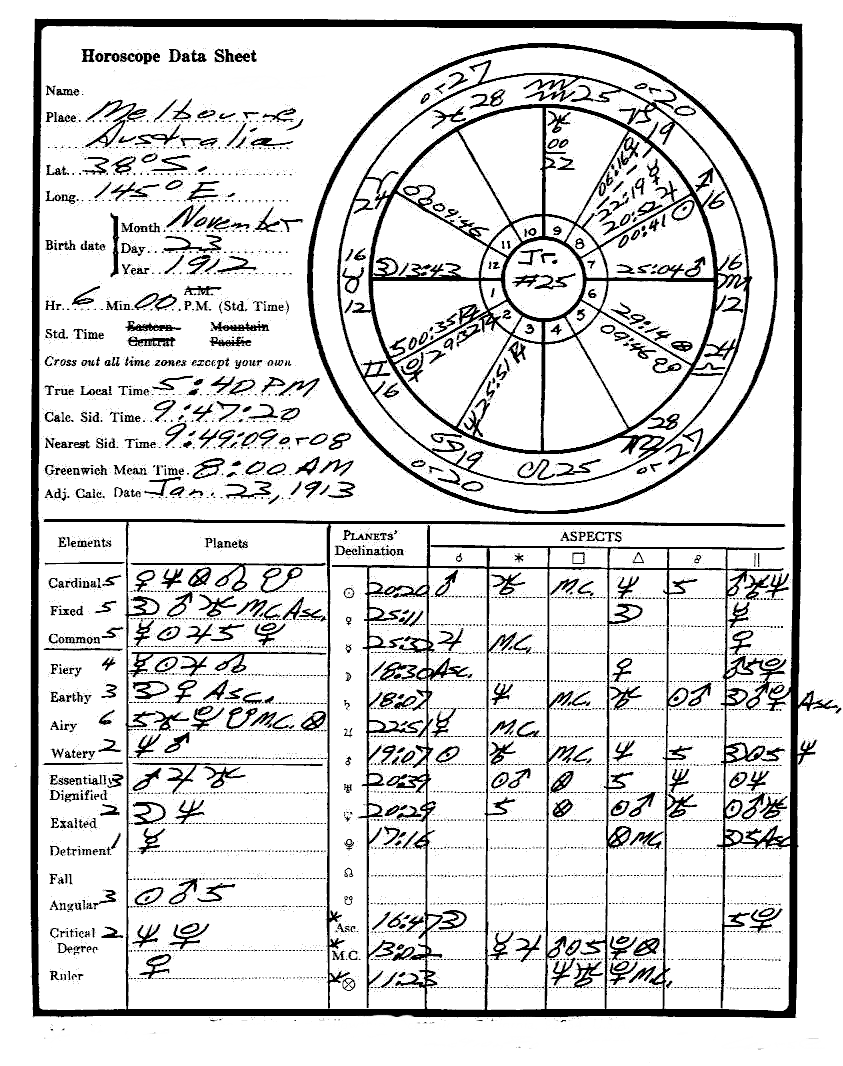 Horoscope Data Sheet
Name
Place Melbourne,
Australia
Lat. 38° S.
Long. 145° E.
Birth date
Month November
Day 23
Year 1912
Hr. 6 Min. 00 A.M. P.M. (Std. Time)
Std. Time Eastern Mountain
Central Pacific
Cross out all time zones except your own
True Local Time 5:40 PM
Calc. Sid. Time 9:47:20
Nearest Sid. Time 9:49:09 or 08
Greenwich Mean Time 8:00 AM
Adj. Calc. Date Jan. 23, 1913
or 27
♓ 28
♒ 25
♑ 19
or 20
♈ 24
♐ 16
16 ♉ 12
16 ♏ 12
♊ 16
24 ♎
♋ 19
or 20
♌ 25
28 ♍
or 27
♅ 00 22
♀ 06:16
☿ 22:19
♃ 20:52
00:41 ☉
☊ 09:46
☽ 13:43
25:04 ♂
29:14 ⊗
09:46 ☋
♄ 00:35 ℞
29:32 ℞
♆ 25:51 ℞
10 9 8 7 6 5 4 3 2 1 12 11
Jr.
#25
Elements Planets PLANETS' Declination ASPECTS
☌ ✶ □ △ ☍ ||
Cardinal 5 ♀ ♆ ⊗ ☊ ☋
Fixed 5 ☽ ♂ ♅ M.C. Asc.
Common 5 ☿ ☉ ♃ ♄ ♇
Fiery 4 ☿ ☉ ♃ ☊
Earthy 3 ☽ ♀ Asc.
Airy 6 ♄ ♅ ♇ ☋ M.C. ⊗
Watery 2 ♆ ♂
Essentially Dignified 3 ♂ ♃ ♅
Exalted 2 ☽ ♆
Detriment 1 ☿
Fall
Angular 3 ☉ ♂ ♄
Critical Degree 2 ♆ ♇
Ruler ♀
☉ 20:20 ♂ ♅ M.C. ♆ ♄ ♂ ♅ ♆
♀ 25:11 ☽ ☿
☿ 25:32 ♃ M.C. ♀
☽ 18:30 Asc. ♀ ♂ ♄ ♇
♄ 18:07 ♆ M.C. ♅ ☉ ♂ ☽ ♂ ♇ Asc.
♃ 22:51 ☿ M.C.
♂ 19:07 ☉ ♅ M.C. ♆ ♄ ☽ ☉ ♄ ♆
♅ 20:39 ☉ ♂ ⊗ ♄ ♆ ☉ ♆
♆ 20:29 ♄ ⊗ ☉ ♂ ♅ ☉ ♂ ♅
♇ 17:16 ⊗ M.C. ☽ ♄ Asc
☊
☋
* Asc. 16:47 ☽ ♄ ♇
* M.C. 13:02 ☿ ♃ ♂ ☉ ♄ ♇ ⊗
* ⊗ 11:23 ♆ ♅ ♇ M.C.